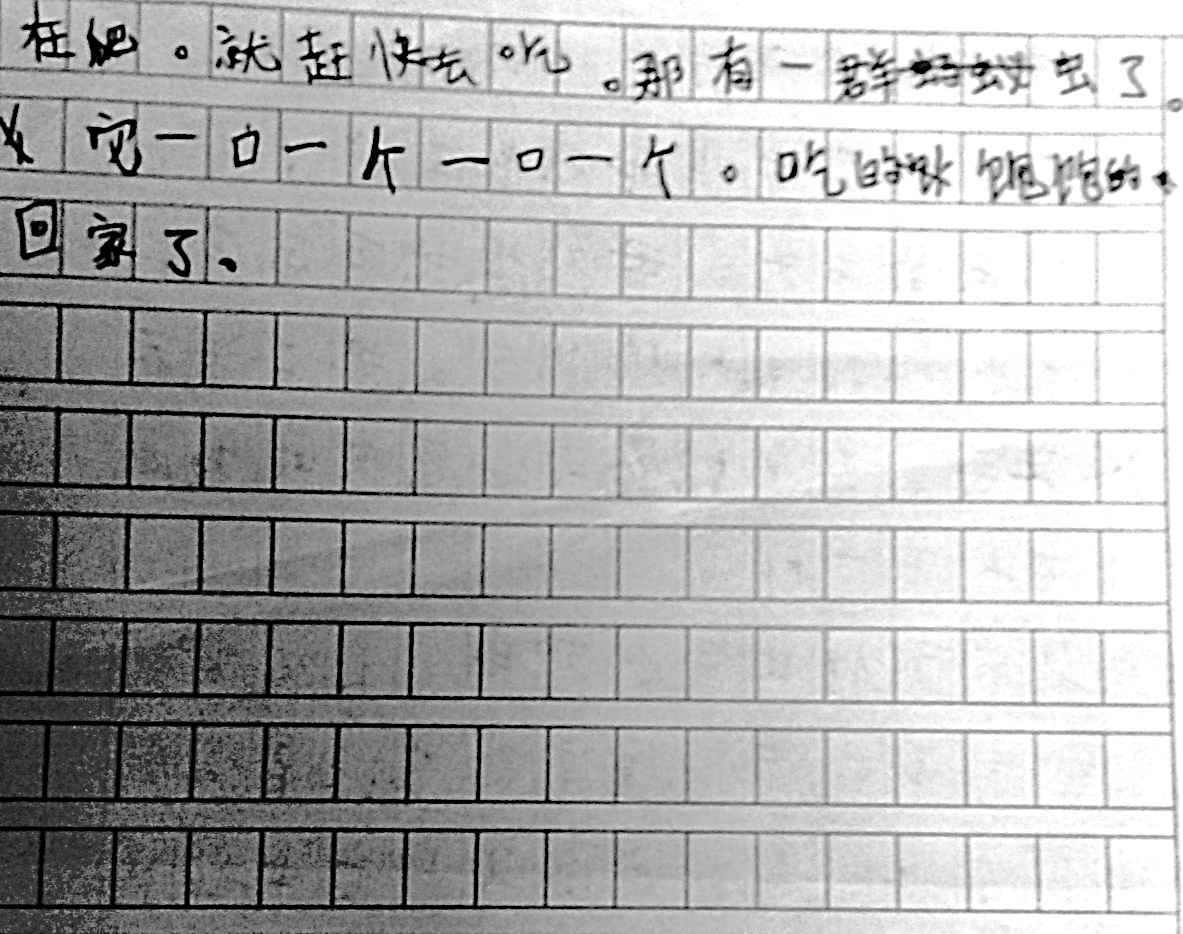 在爬。就赶快去吃。那有一群虫了。
它一口一个一口一个。吃的饱饱的
回家了。